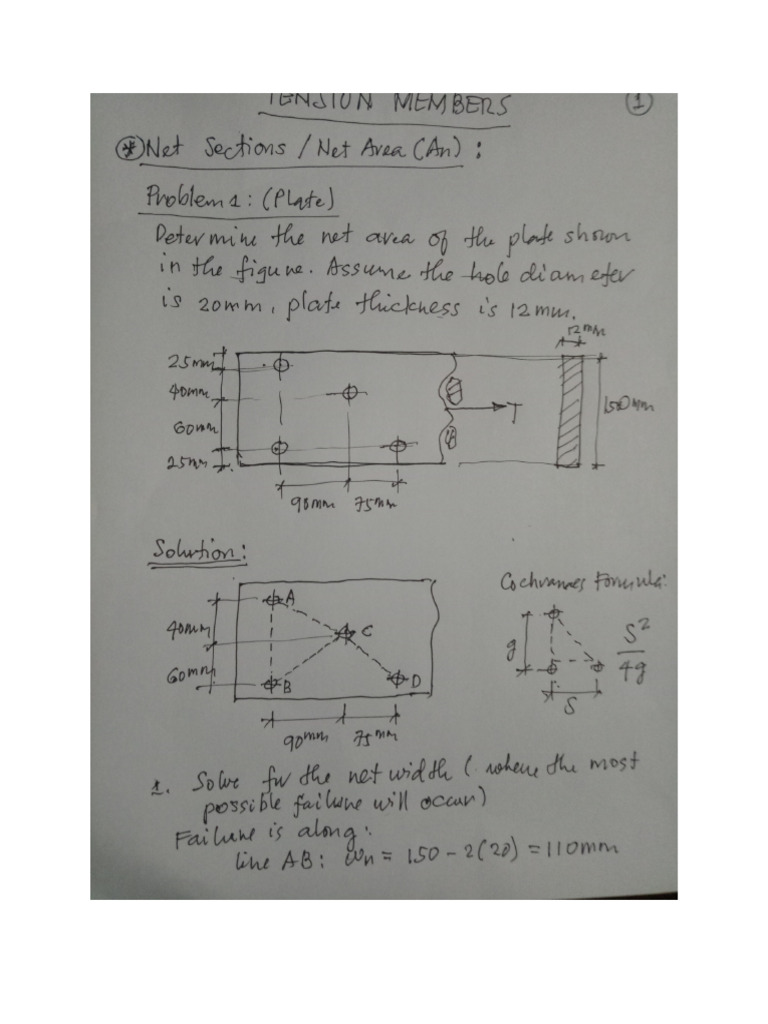 TENSION MEMBERS
1
* Net Sections / Net Area (An) :
Problem 1 : (Plate)
Determine the net area of the plate shown
in the figure. Assume the hole diameter
is 20mm, plate thickness is 12mm.
12mm
25mm
40mm
60mm
25mm
T
150mm
90mm 75mm
Solution:
Cochranes Formula:
A
40mm
C
60mm
B
D
g
S²
4g
S
90mm 75mm
1. Solve for the net width ( where the most
possible failure will occur)
Failure is along:
line AB: Wn = 150 - 2(20) = 110mm